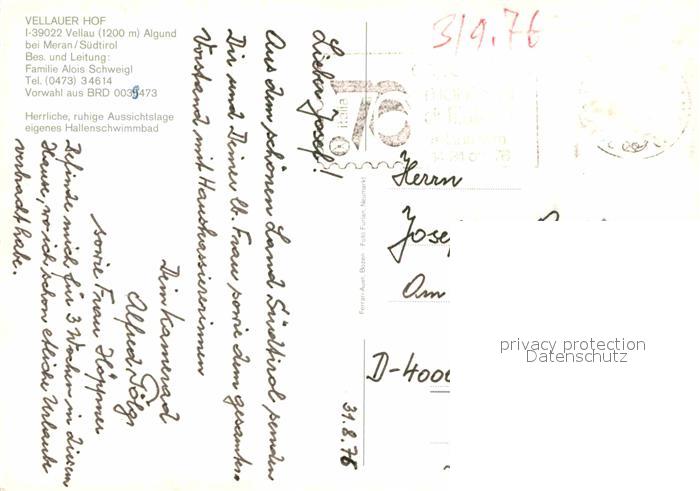 VELLAUER HOF
I-39022 Vellau (1200 m) Algund
bei Meran/Südtirol
Bes. und Leitung:
Familie Alois Schweigl
Tel. (0473) 34614
Vorwahl aus BRD 0039473
Herrliche, ruhige Aussichtslage
eigenes Hallenschwimmbad
3/9.76
italia
76
Lieber Josef!
Aus dem schönen Land Südtirol senden
Dir und Deiner lb. Frau sowie dem gesamten
Vorstand mit Hauskassiererinnen
Dein Kamerad
Alfred
sowie Frau Höppner
Befinde mich für 3 Wochen in diesem
Hause, wo ich schon etliche Urlaube
verbracht habe.
31.8.76
Foto Furlan, Neumarkt
Herrn
Josef
Am
D-4000
privacy protection
Datenschutz